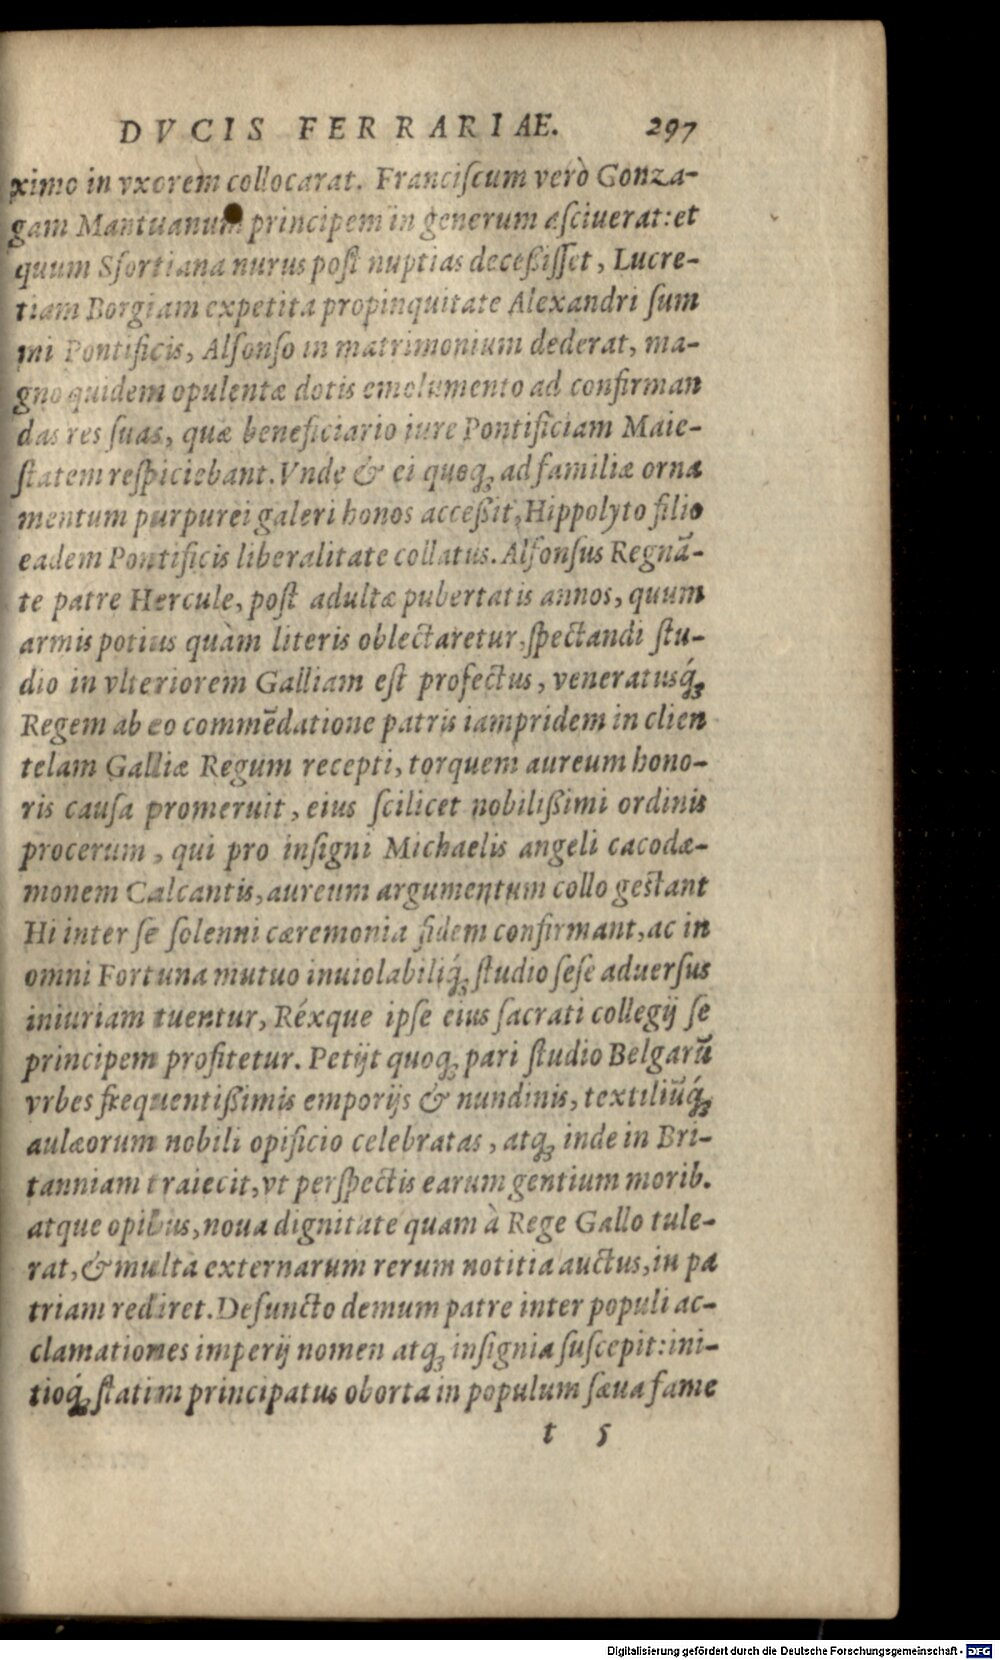 DVCIS FERRARIAE. 297
ximo in vxorem collocarat. Franciſcum verò Gonza-
gam Mantuanum principem in generum aſciuerat: et
quum Sfortiana nurus poſt nuptias deceßiſſet, Lucre-
tiam Borgiam expetita propinquitate Alexandri ſum
mi Pontificis, Alfonſo in matrimonium dederat, ma-
gno quidem opulentæ dotis emolumento ad confirman
das res ſuas, quæ beneficiario iure Pontificiam Maie-
ſtatem reſpiciebant. Vnde & ei quoqꝫ ad familiæ orna
mentum purpurei galeri honos acceßit, Hippolyto filio
eadem Pontificis liberalitate collatus. Alfonſus Regnã-
te patre Hercule, poſt adultæ pubertatis annos, quum
armis potius quàm literis oblectaretur, ſpectandi ſtu-
dio in vlteriorem Galliam eſt profectus, veneratusq́ꝫ
Regem ab eo commẽdatione patris iampridem in clien
telam Galliæ Regum recepti, torquem aureum hono-
ris cauſa promeruit, eius ſcilicet nobilißimi ordinis
procerum, qui pro inſigni Michaelis angeli cacodæ-
monem Calcantis, aureum argumentum collo geſtant
Hi inter ſe ſolenni cæremonia fidem confirmant, ac in
omni Fortuna mutuo inuiolabiliq́ꝫ ſtudio ſeſe aduerſus
iniuriam tuentur, Réxque ipſe eius ſacrati collegij ſe
principem profitetur. Petijt quoqꝫ pari ſtudio Belgarũ
vrbes frequentißimis emporijs & nundinis, textiliũq́ꝫ
aulæorum nobili opificio celebratas, atqꝫ inde in Bri-
tanniam traiecit, vt perſpectis earum gentium morib.
atque opibus, noua dignitate quam à Rege Gallo tule-
rat, & multa externarum rerum notitia auctus, in pa
triam rediret. Defuncto demum patre inter populi ac-
clamationes imperij nomen atqꝫ inſignia ſuſcepit: ini-
tioq́ꝫ ſtatim principatus oborta in populum ſæua fame
t 5
Digitalisierung gefördert durch die Deutsche Forschungsgemeinschaft - DFG